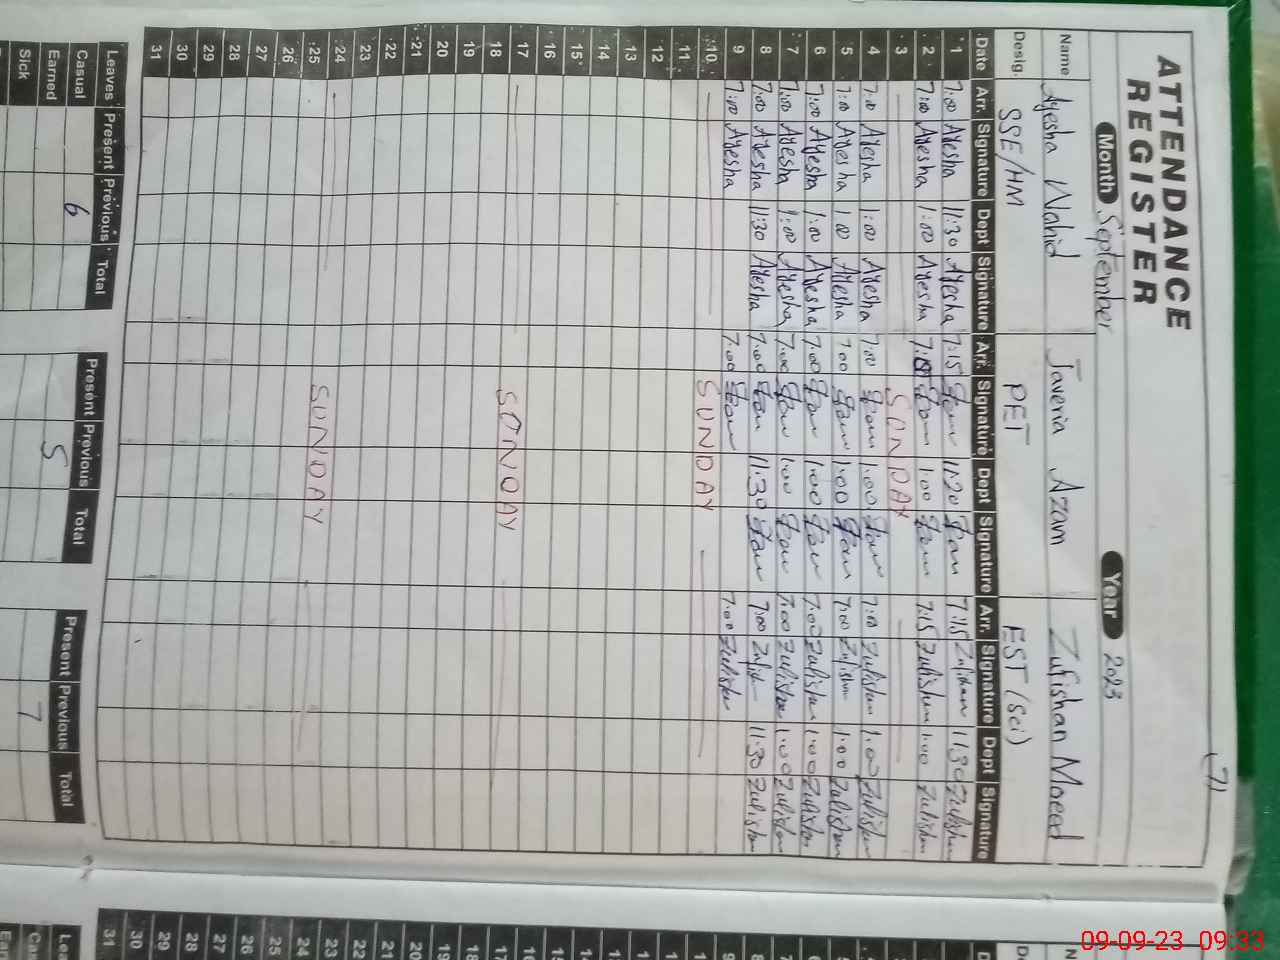 (7)
ATTENDANCE
REGISTER
Month September Year 2023
Name Ayesha Wahid Javeria Azam Zufishan Moeed
Desig. SSE/HM PET EST (Sci)
Date Arr. Signature Dept Signature Arr. Signature Dept Signature Arr. Signature Dept Signature
1 7:00 Ayesha 11:30 Ayesha 7:15 11:30 7:15 Zufishan 11:30 Zufishan
2 7:00 Ayesha 1:00 Ayesha 7:00 1:00 7:15 Zufishan 1:00 Zufishan
3 SUNDAY
4 7:00 Ayesha 1:00 Ayesha 7:00 1:00 7:00 Zufishan 1:00 Zufishan
5 7:00 Ayesha 1:00 Ayesha 7:00 1:00 7:00 Zufishan 1:00 Zufishan
6 7:00 Ayesha 1:00 Ayesha 7:00 1:00 7:00 Zufishan 1:00 Zufishan
7 7:00 Ayesha 1:00 Ayesha 7:00 1:00 7:00 Zufishan 1:00 Zufishan
8 7:00 Ayesha 11:30 Ayesha 7:00 11:30 7:00 Zufish 11:30 Zufishan
9 7:00 Ayesha 7:00 7:00 Zufishan
10 SUNDAY
11
12
13
14
15
16
17 SUNDAY
18
19
20
21
22
23
24 SUNDAY
25
26
27
28
29
30
31
Leaves Present Previous Total Present Previous Total Present Previous Total
Casual 6
Earned 5
Sick 7
31
30
29
28
27
26
25
24
23
22
21
20
19
18
17
16
09-09-23 09:33